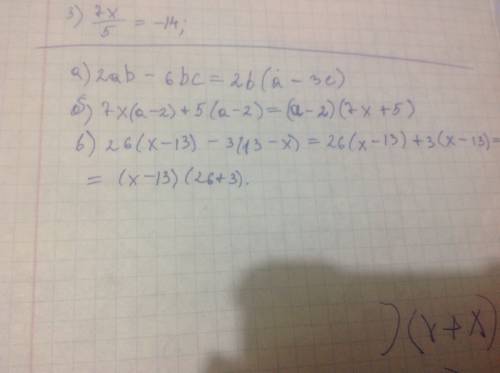 3) 7x/5 = -14;
а) 2ab - 6bc = 2b(a - 3c)
б) 7x(a-2) + 5(a-2) = (a-2)(7x+5)
в) 26(x-13) - 3(13-x) = 26(x-13) + 3(x-13) =
= (x-13)(26+3).
)(x+x)